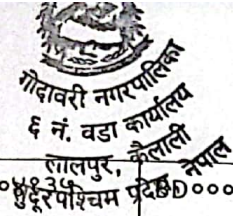 गोदावरी नगरपालिका
६ नं. वडा कार्यालय
लालपुर, कैलाली
सुदूरपश्चिम प्रदेश नेपाल